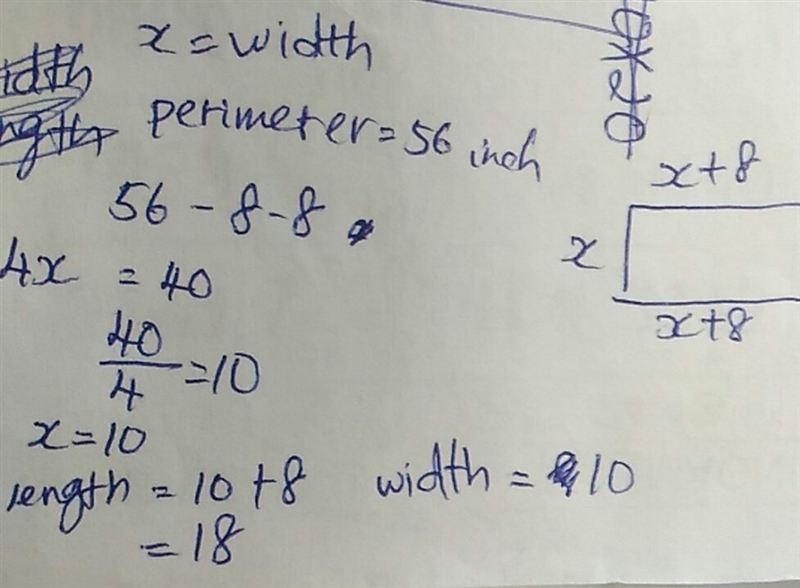 x = width
perimeter = 56 inch
56 - 8 - 8
4x = 40
40/4 = 10
x = 10
length = 10 + 8
= 18
width = 10
x + 8
x
x + 8